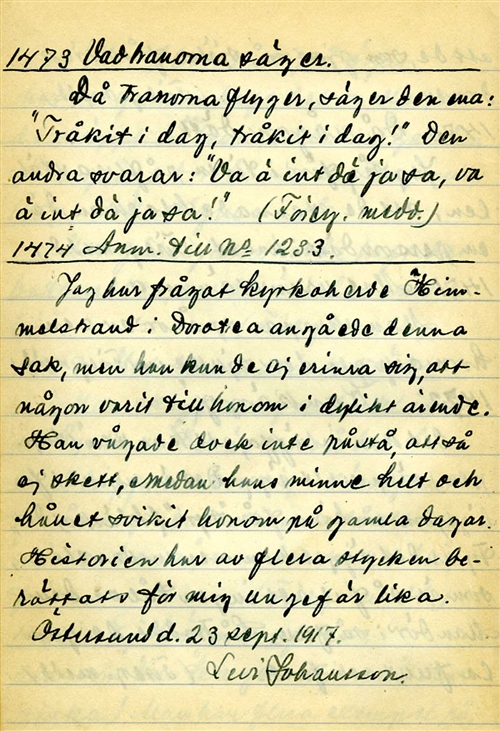 1473 Vad tranorna säger.
Då tranorna flyger, säger den ena:
"Tråkit i dag, tråkit i dag!" Den
andra svarar: "Va å int dä ja sa, va
å int dä ja sa!" (Föreg. medd.)
1474 Anm. till No 1233.
Jag har frågat kyrkoherde Him-
melstrand i Dorotea angåede denna
sak, men han kunde ej erinra sig, att
någon varit till honom i dylikt ärende.
Han vågade dock inte påstå, att så
ej skett, emedan hans minne helt och
hållet svikit honom på gamla dagar.
Historien har av flera stycken be-
rättats för mig ungefär lika.
Östersund d. 23 sept. 1917.
Levi Johansson.